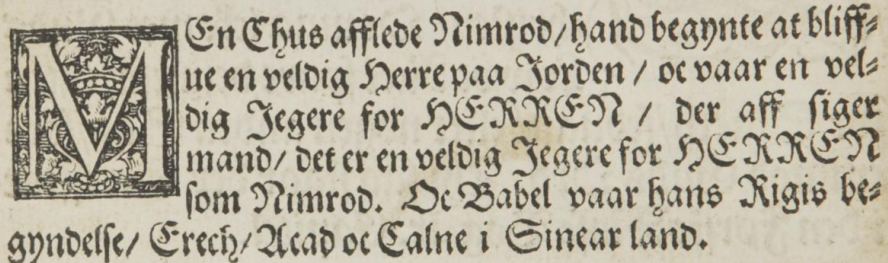 MEn Chus afflede Nimrod/ hand begynte at bliff⸗
ue en veldig Herre paa Jorden / oc vaar en vel⸗
dig Jegere for HERREN / der aff siger
mand/ det er en veldig Jegere for HERREN
som Nimrod. Oc Babel vaar hans Rigis be⸗
gyndelse/ Erech/ Acad oc Calne i Sinear land.